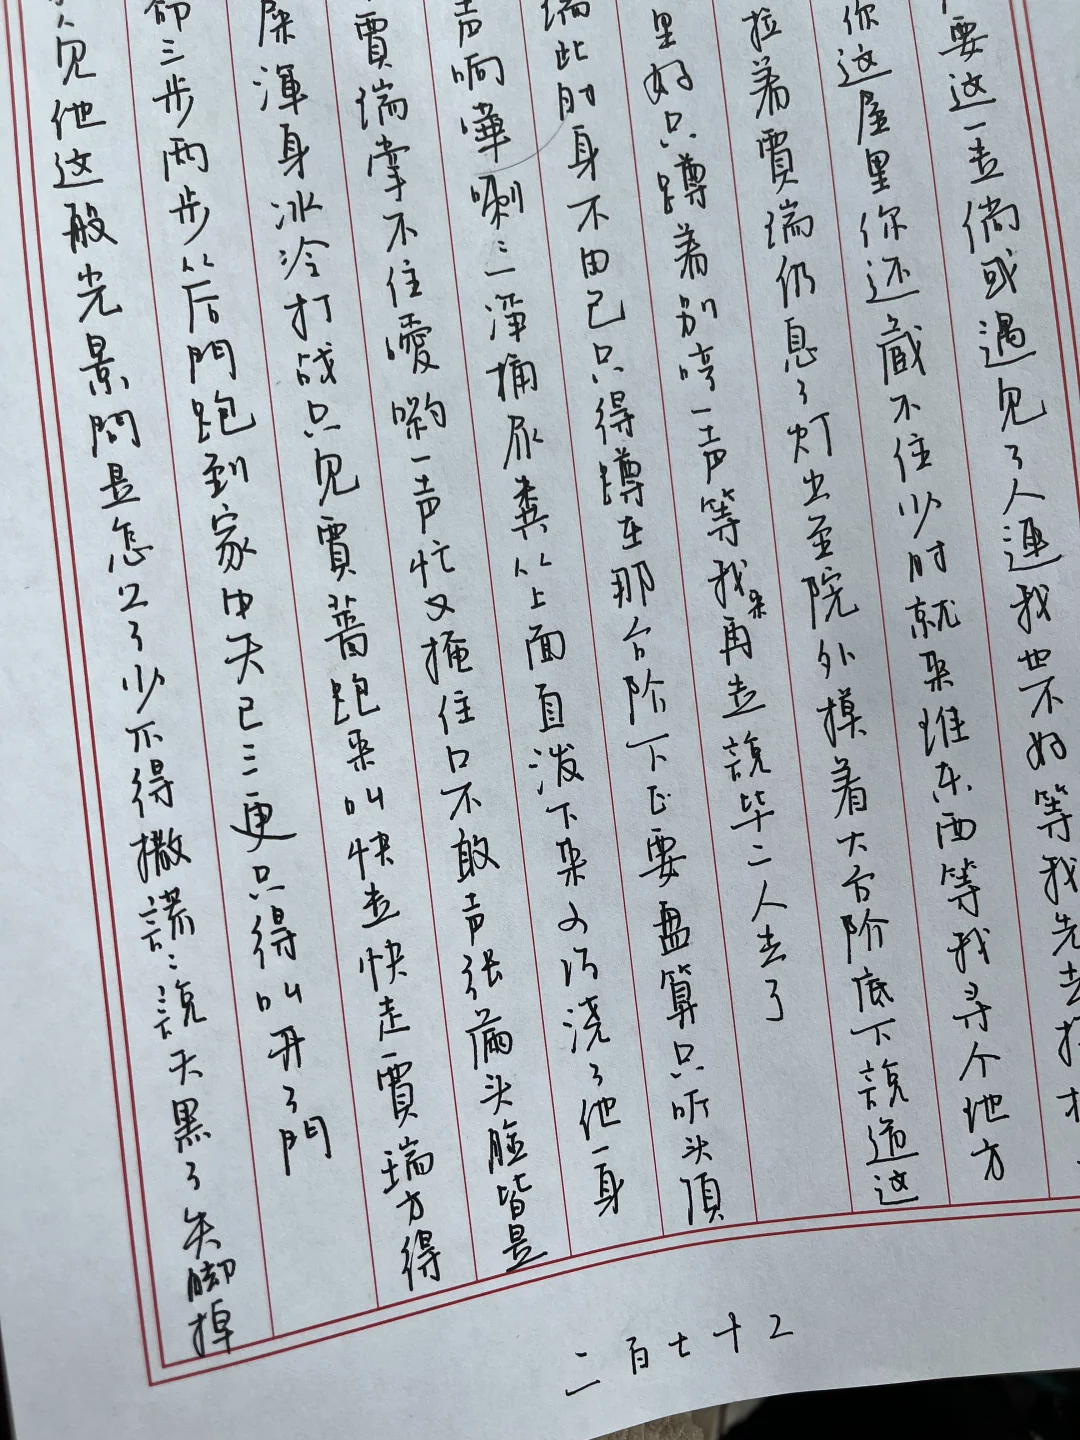 要这一走倘或遇见了人連我也不好等我先去
你这屋里你还藏不住少时就来堆东西等我寻个地方
拉着賈瑞仍息了灯出至院外摸着大台阶底下說道这
里好只蹲着别哼一声等我来再走說毕二人去了
瑞此时身不由己只得蹲在那台阶下正要盘算只听头頂
声响嘩喇三一淨桶尿糞从上面直泼下来可巧浇了他一身
賈瑞掌不住噯喲一声忙又掩住口不敢声张满头脸皆是
屎渾身冰冷打战只见賈蔷跑来叫快走快走賈瑞方得
命三步两步从后門跑到家中天已三更只得叫开了門
人见他这般光景問是怎么了少不得撒謊:說天黑了失脚掉
二百七十二